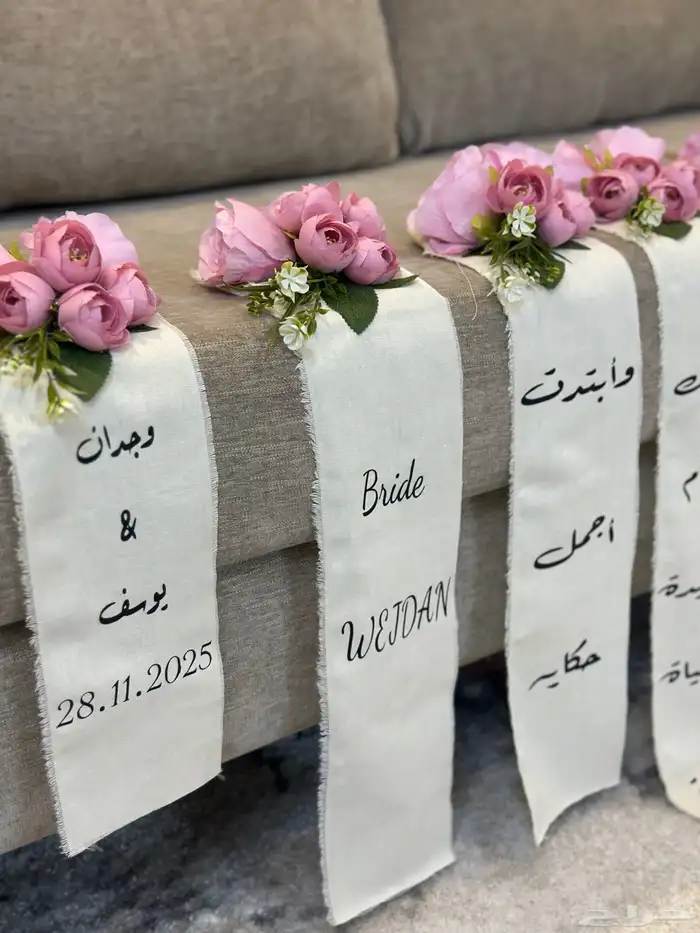 وجدان
&
يوسف
28.11.2025
Bride
WEJDAN
وأبتدت
أجمل
حكايه